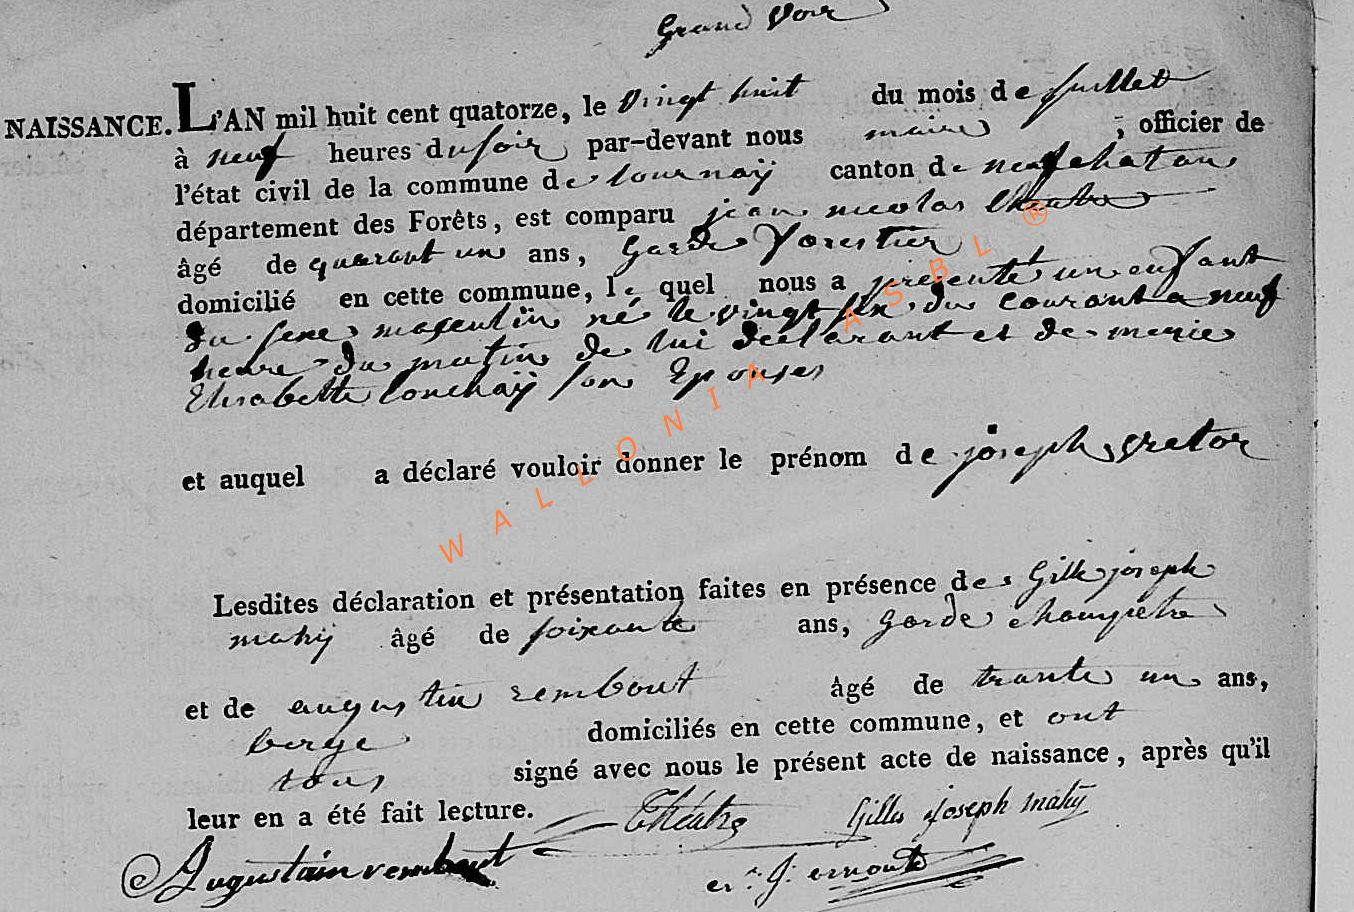 Grand Voir
NAISSANCE. L'AN mil huit cent quatorze, le vingt huit du mois de juillet
à neuf heures du soir par-devant nous maire, officier de
l'état civil de la commune de tournaÿ canton de neufchatau
département des Forêts, est comparu jean nicolas théatre
âgé de quarant un ans, garde forestier
domicilié en cette commune, le quel nous a présenté un enfant
du sexe masculin né le vingt six du courant a neuf
heure du matin de lui déclarant et de marie
Elisabette Conchaÿ son Epouse
et auquel a déclaré vouloir donner le prénom de joseph
Lesdites déclaration et présentation faites en présence de Gille joseph
mahÿ âgé de soixante ans, garde champetre
et de augustin rembout âgé de trante un ans,
berge domiciliés en cette commune, et ont
tous signé avec nous le présent acte de naissance, après qu'il
leur en a été fait lecture. Théâtre Gille joseph mahÿ
Augustain rembout
WALLONIA ASBL ®